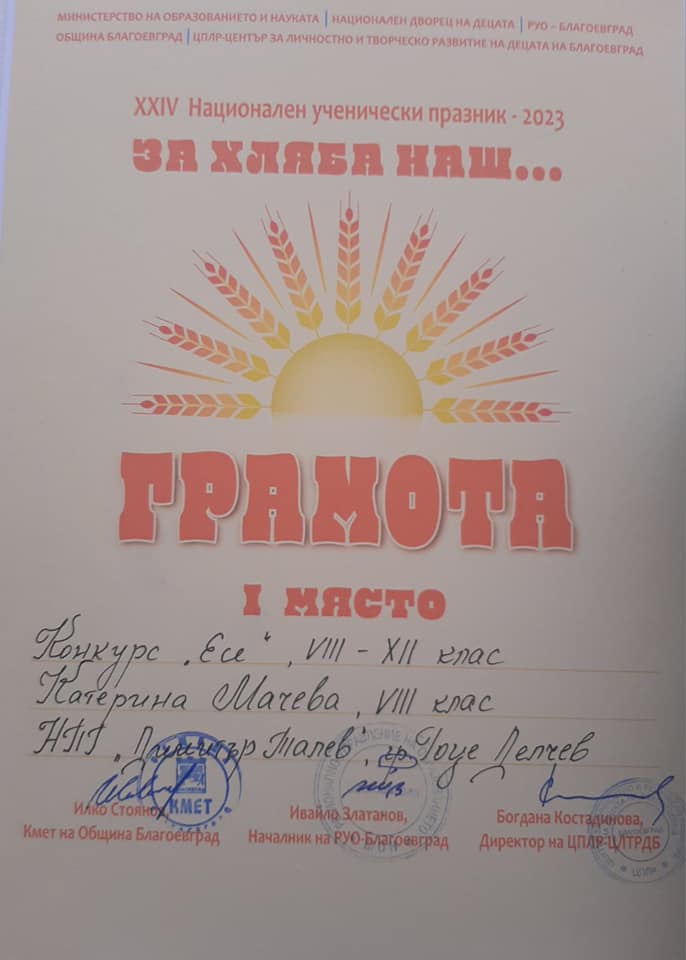 МИНИСТЕРСТВО НА ОБРАЗОВАНИЕТО И НАУКАТА | НАЦИОНАЛЕН ДВОРЕЦ НА ДЕЦАТА | РУО – БЛАГОЕВГРАД
ОБЩИНА БЛАГОЕВГРАД | ЦПЛР-ЦЕНТЪР ЗА ЛИЧНОСТНО И ТВОРЧЕСКО РАЗВИТИЕ НА ДЕЦАТА НА БЛАГОЕВГРАД
XXIV Национален ученически празник - 2023
ЗА ХЛЯБА НАШ...
ГРАМОТА
I МЯСТО
Конкурс „Есе“, VIII – XII клас
Катерина Мачева, VIII клас
НПГ „Димитър Талев“, гр. Гоце Делчев
Илко Стоянов, Ивайло Златанов, Богдана Костадинова,
Кмет на Община Благоевград Началник на РУО-Благоевград Директор на ЦПЛР-ЦЛТРДБ
КМЕТ